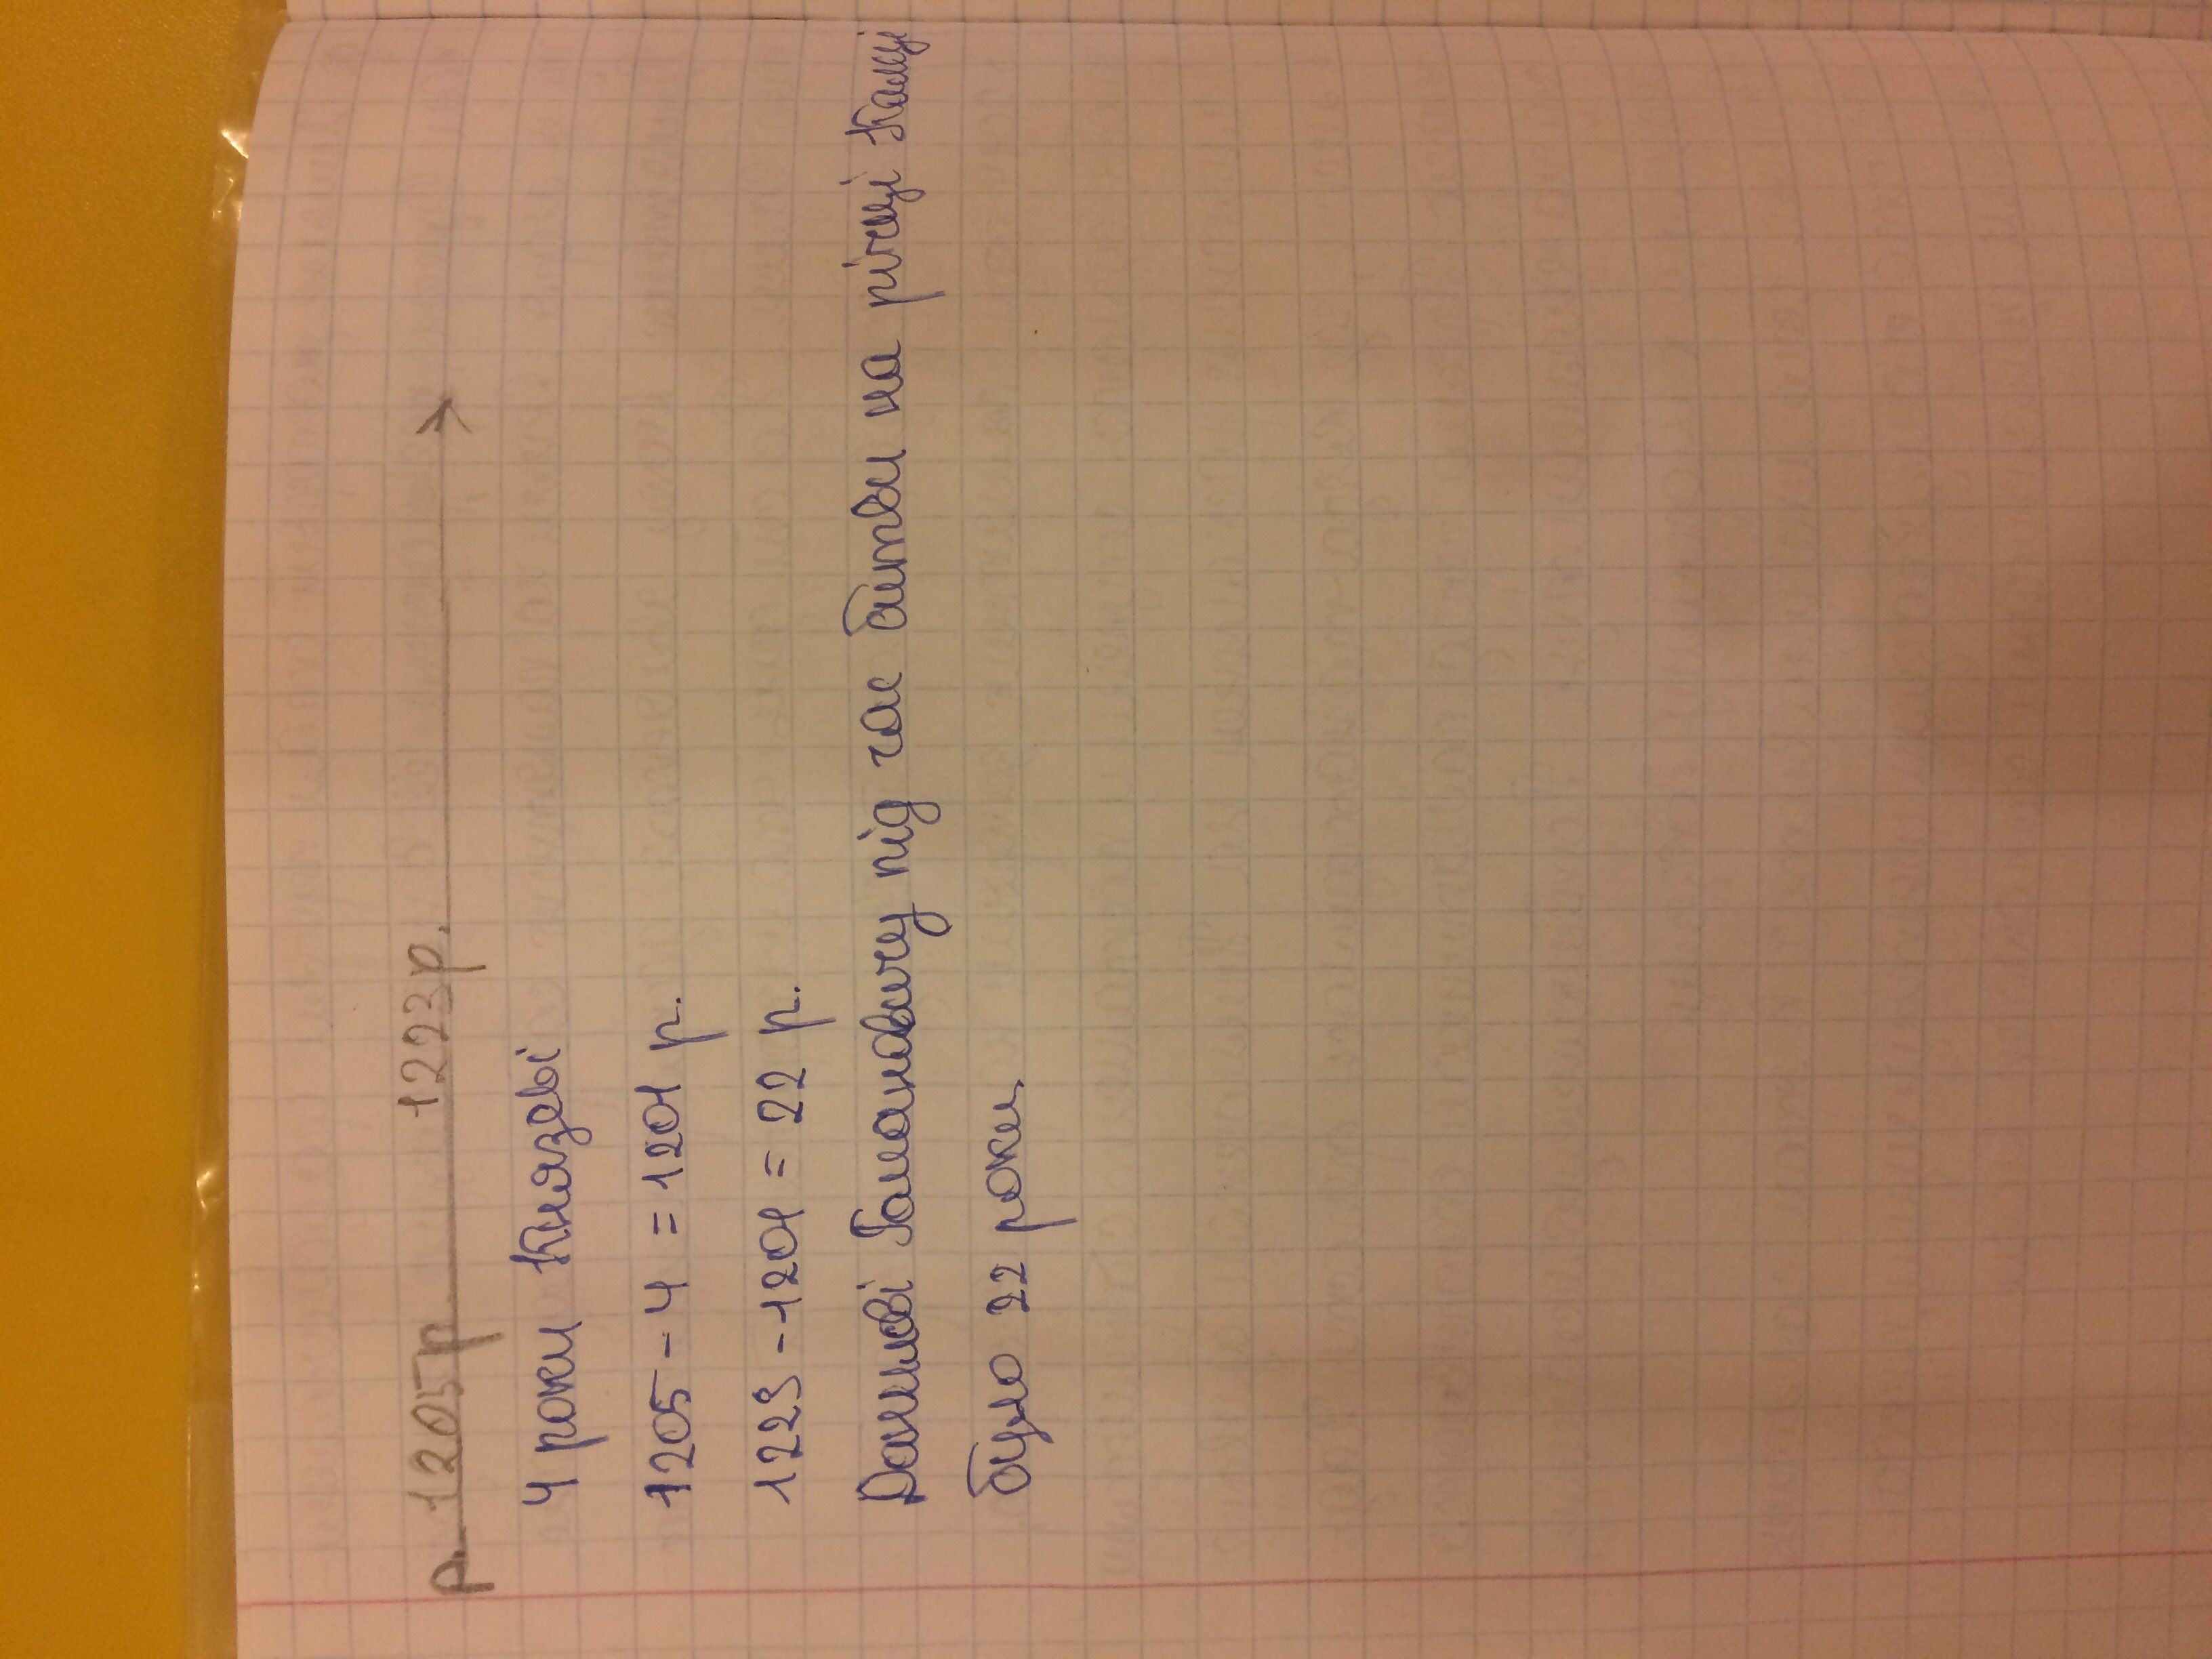 р. 1205р. 1223р.
4 роки Князеві
1205 - 4 = 1201 р.
1223 - 1201 = 22 р.
Данилові Романовичу під час битви на річці Калці
було 22 роки.